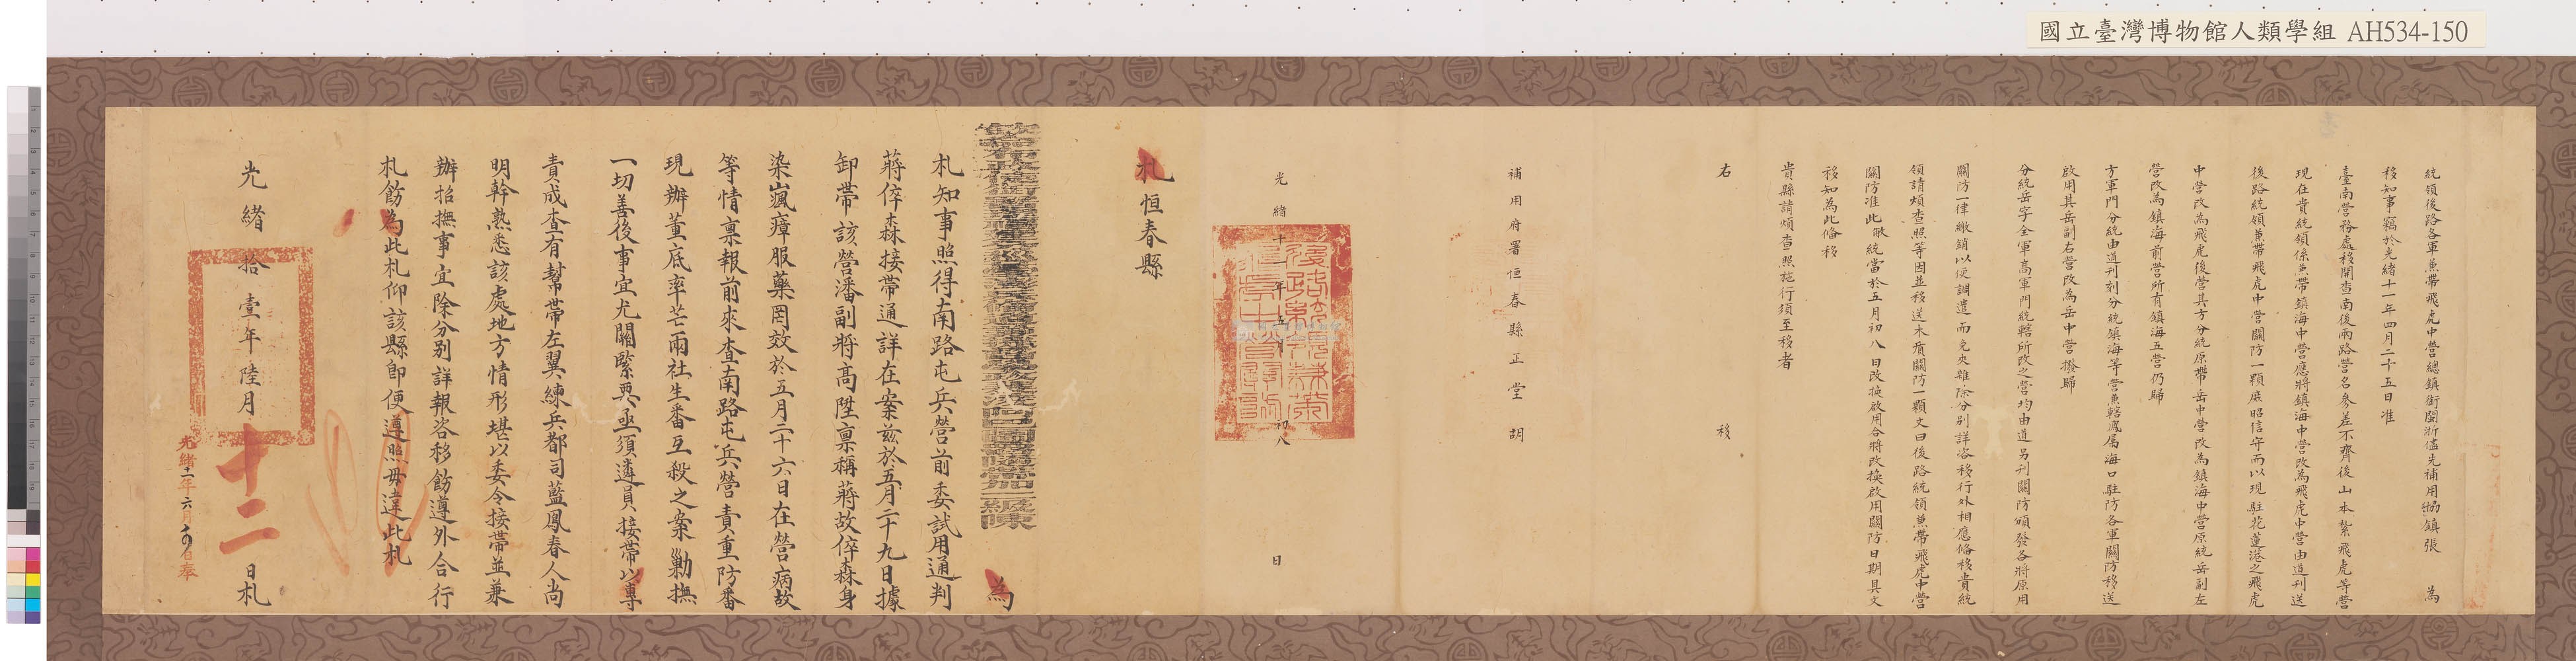 國立臺灣博物館人類學組 AH534-150
統領後路各軍兼帶飛虎中營總鎮銜閩浙儘先補用協鎮張 為
移知事竊於光緒十一年四月二十五日准
臺南營務處移開查南後兩路營名參差不齊後山本紮飛虎等營
現在貴統領係兼帶鎮海中營應將鎮海中營改為飛虎中營由道刊送
後路統領兼帶飛虎中營關防一顆庶昭信守而以現駐花蓮港之飛虎
中營改為飛虎後營其方分統原帶岳中營改為鎮海中營原統岳副左
營改為鎮海前營所有鎮海五營仍歸
方軍門分統由道刊刻分統鎮海等營兼轄鳳屬海口駐防各軍關防移送
啟用其岳副右營改為岳中營撥歸
分統岳字全軍高軍門統轄所改之營均由道另刊關防頒發各將原用
關防一律繳銷以便調遣而免夾雜除分別詳咨移行外相應備移貴統
領請煩查照等因並移送木質關防一顆文曰後路統領兼帶飛虎中營
關防准此敝統當於五月初八日改換啟用合將改換啟用關防日期具文
移知為此備移
貴縣請煩查照施行須至移者
右 移
補用府署恒春縣正堂胡
光緒十一年五月初八 日
札恒春縣
為
札知事照得南路屯兵營前委試用通判
蔣倅森接帶通詳在案茲於五月二十九日據
卸帶該營潘副將高陞稟稱蔣故倅森身
染嵐瘴服藥罔效於五月二十六日在營病故
等情稟報前來查南路屯兵營責重防番
現辦董底率芒兩社生番互殺之案勦撫
一切善後事宜尤關緊要亟須遴員接帶以專
責成查有幫帶左翼練兵都司藍鳳春人尚
明幹熟悉該處地方情形堪以委令接帶並兼
辦招撫事宜除分別詳報咨移飭遵外合行
札飭為此札仰該縣即便遵照毋違此札
光緒拾壹年陸月十二日札